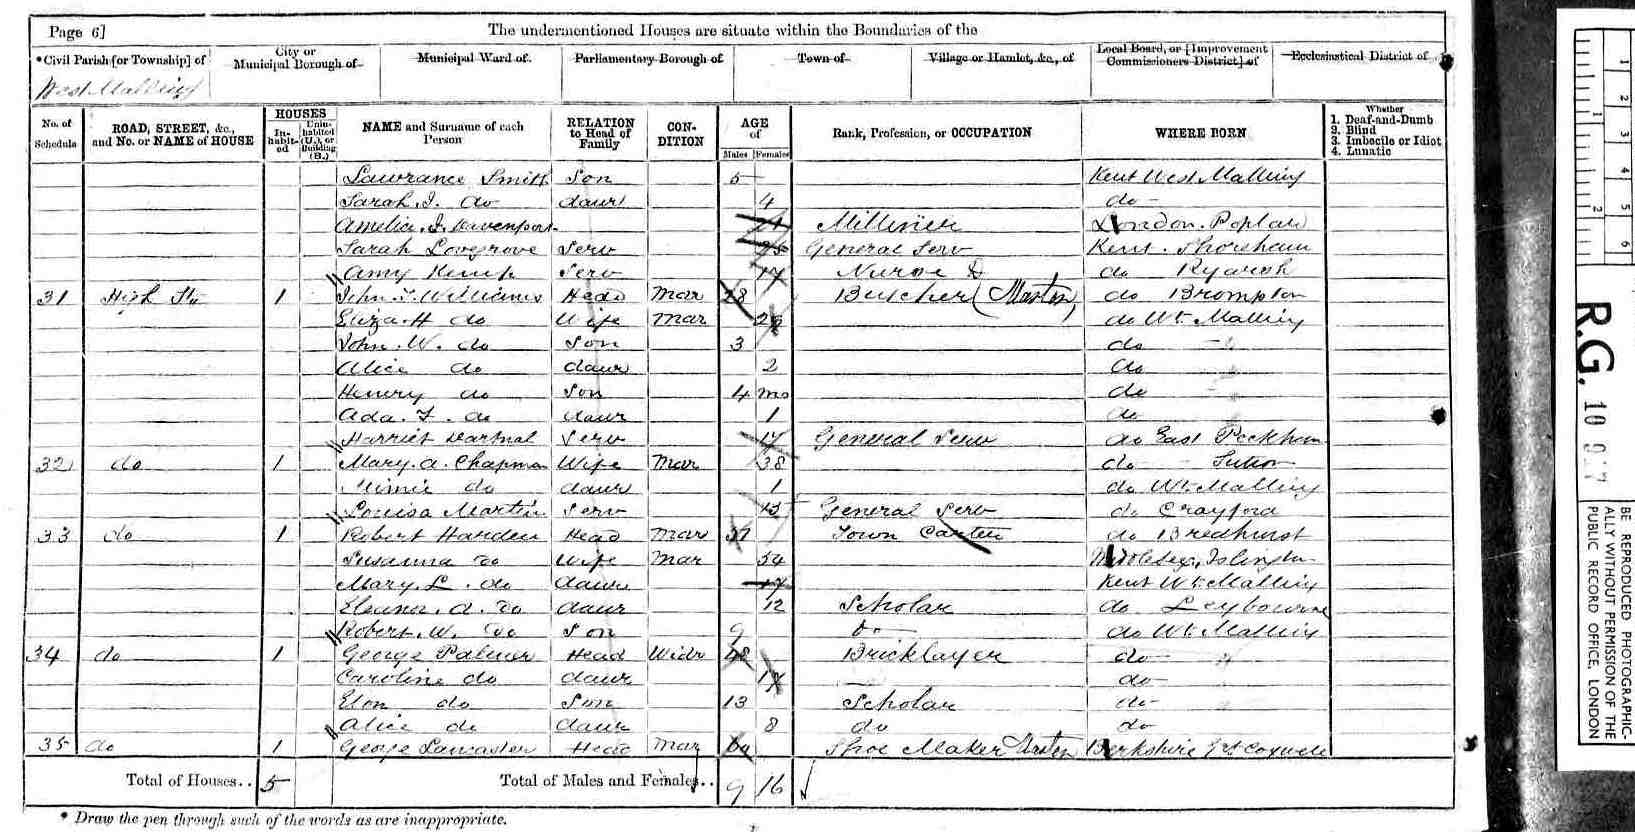 Page 6]
The undermentioned Houses are situate within the Boundaries of the
*Civil Parish [or Township] of
City or Municipal Borough of
Municipal Ward of.
Parliamentary Borough of
Town of
Village or Hamlet, &c., of
Local Board, or [Improvement Commissioners District] of
Ecclesiastical District of
West Malling
No. of Schedule
ROAD, STREET, &c., and No. or NAME of HOUSE
HOUSES
In-habit-ed
Unin-habited (U.), or Building (B.)
NAME and Surname of each Person
RELATION to Head of Family
CON-DITION
AGE of
Males
Females
Rank, Profession, or OCCUPATION
WHERE BORN
Whether
1. Deaf-and-Dumb
2. Blind
3. Imbecile or Idiot
4. Lunatic
Lawrance Smith Son 5 Kent West Malling
Sarah. J. do daur 4 do
Amelia. J. Davenport Milliner London. Poplar
Sarah Lovegrove Serv General Serv Kent. Shoreham
Amy Kemp Serv 17 Nurse D do Ryarsh
31 High Str 1 John. T. Williams Head Mar 28 Butcher (Master) do Brompton
Eliza. H do Wife Mar do Wt. Malling
John. W. do Son 3 do
Alice do daur 2 do
Henry do Son 4 mo do
Ada. F. do daur 1 do
Harriet Dartnal Serv 17 General Serv do East Peckham
32 do 1 Mary. A. Chapman Wife Mar 38 do Sutton
Minnie do daur 1 do Wt. Malling
Louisa Martin Serv 13 General Serv do Crayford
33 do 1 Robert Harden Head Mar Town Carter do Bredhurst
Susanna do Wife Mar 54 Middlesex, Islington
Mary. L. do daur 17 Kent Wt. Malling
Eleanor. A. do daur 12 Scholar do Leybourne
Robert. W. do Son 9 do do Wt. Malling
34 do 1 George Palmer Head Widr 48 Bricklayer do
Caroline do daur do
Eton do Son 13 Scholar do
Alice do daur 8 do do
35 do 1 George Lancaster Head Mar Shoe Maker Master Berkshire Grt Coxwell
Total of Houses.. 5 Total of Males and Females.. 9 16
* Draw the pen through such of the words as are inappropriate.
1
2
3
4
5
6
1
2
R.G. 10
BE REPRODUCED PHOTOGRAPHIC-
ALLY WITHOUT PERMISSION OF THE
PUBLIC RECORD OFFICE, LONDON